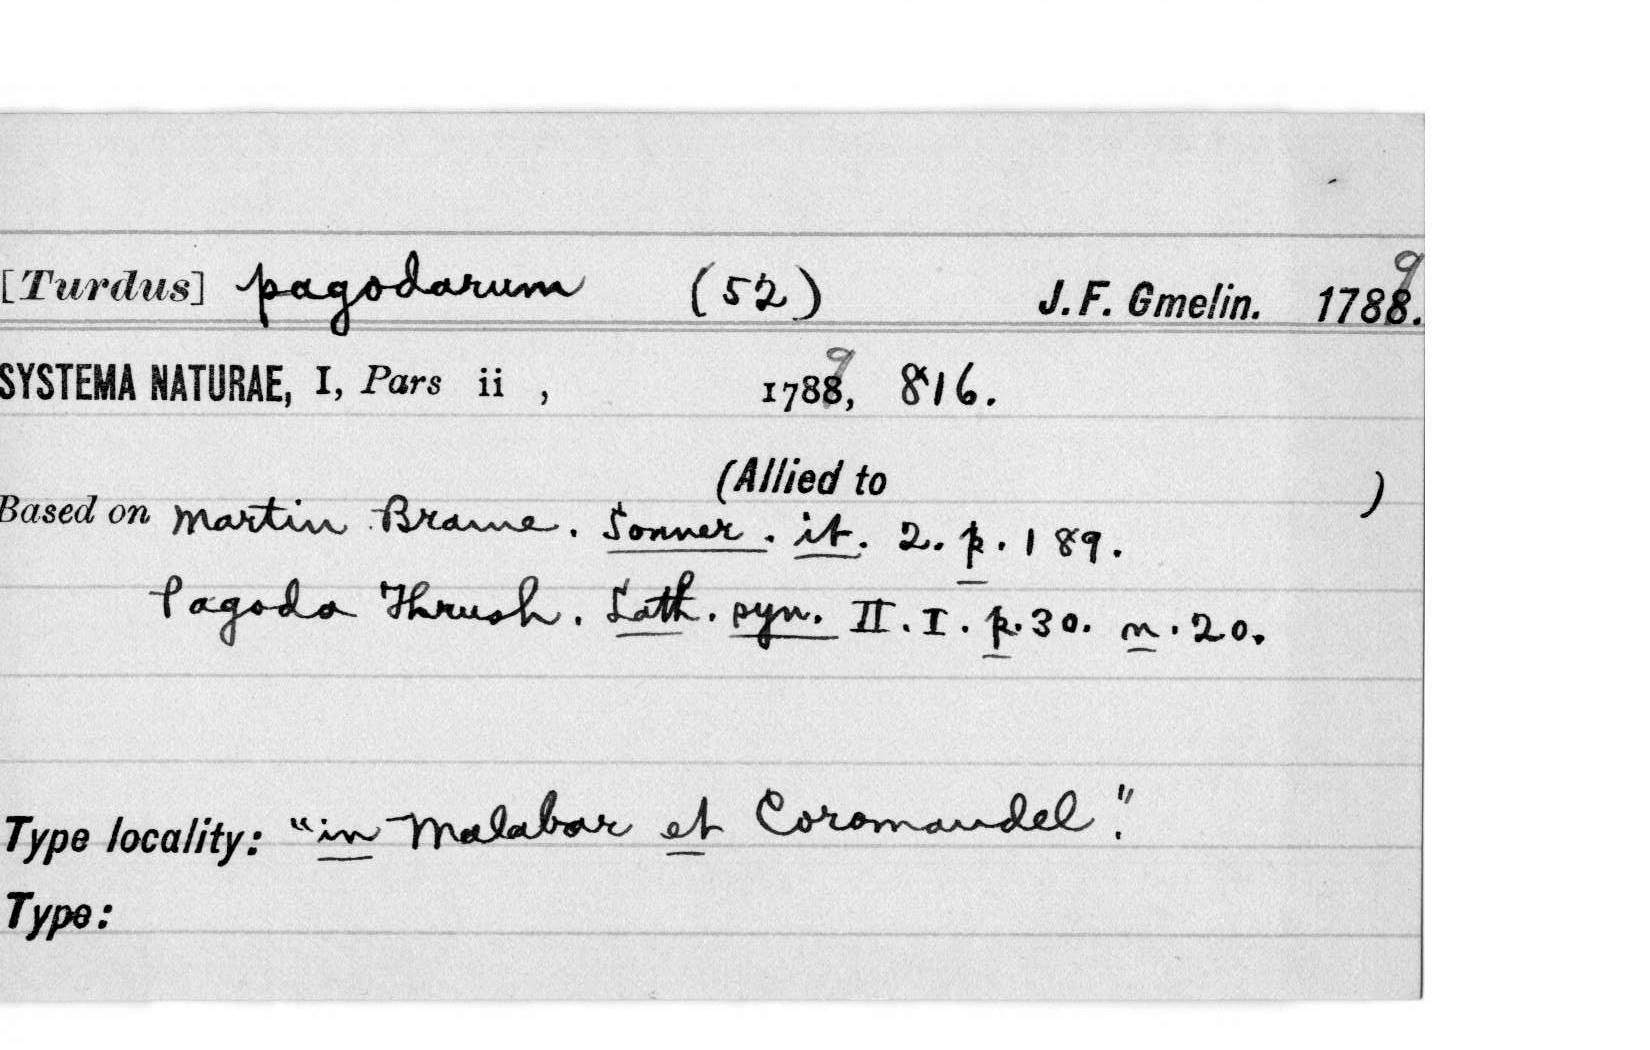 [Turdus] pagodarum (52) J. F. Gmelin. 1789.
SYSTEMA NATURAE, I, Pars ii , 1789, 816.
(Allied to )
Based on Martin Brame. Sonner. it. 2. p. 189.
Pagoda Thrush. Lath. syn. II. I. p. 30. n. 20.
Type locality: "in Malabar et Coromandel."
Type: